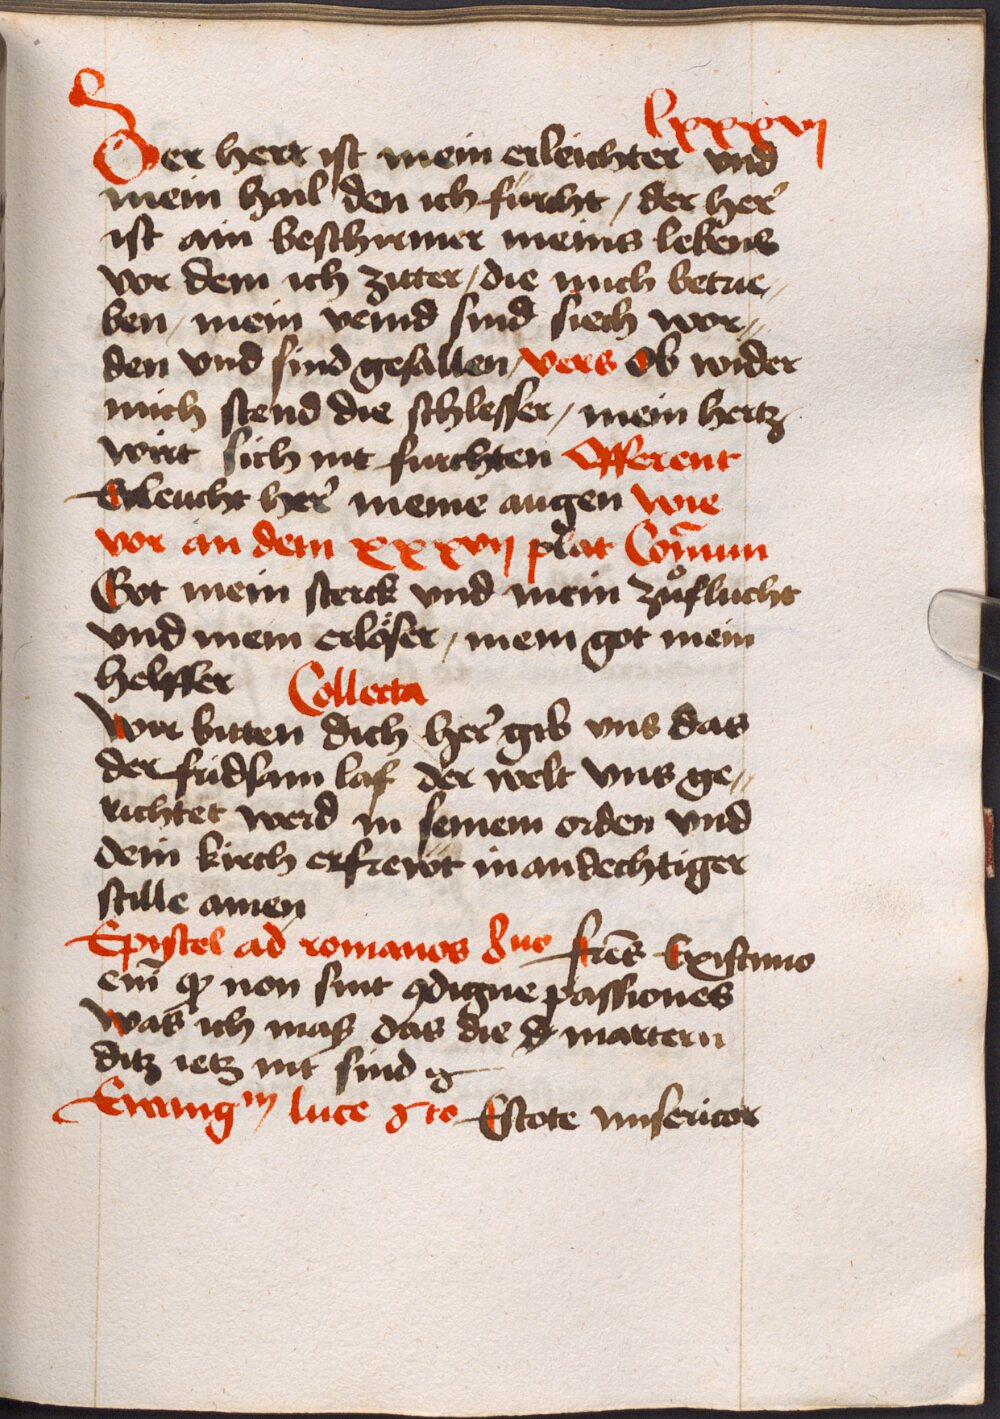 lxxxvj
Der herr ist mein erleichter vnd
mein hail den ich fürcht / der her̃
ist ain beschirmer meins lebens
vor dem ich zitter / die mich betrie„
ben / mein veind sind siech wor„
den vnd sind gefallen / vers Ob wider
mich stend die schlesser / mein hertz
wirt sich nit furchten Offerent
Erleucht her̃ meine augen wie
vor an dem xxxvij plat Com̃un
Got mein sterck vnd mein zůflucht
vnd mein erlöser / mein got mein
helffer Collecta
Wir bitten dich her̃ gib vns das
der fridsam laf der welt vns ge„
richtet werd in seinem orden vnd
dein kirch erfrewt in andechtiger
stille amen
Epistel ad romanos 8uo fre͂s Existimo
eim̃ ꝙ non sint ꝯdigne passiones
Was ich mas das die martern
ditz ietz nit sind
Ewangm luce 6to Estote misericor